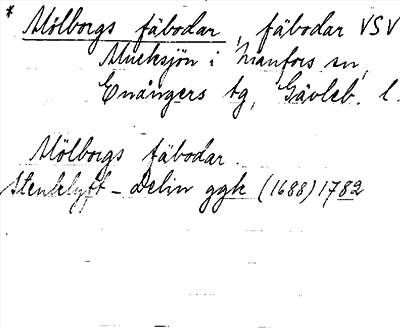 * Mölborgs fäbodar, fäbodar VSV
Mucksjön i Nianfors sn,
Enångers tg, Gävleb. l.
Mölborgs fäbodar.
Stenklyft – Delin ggk (1688) 1782